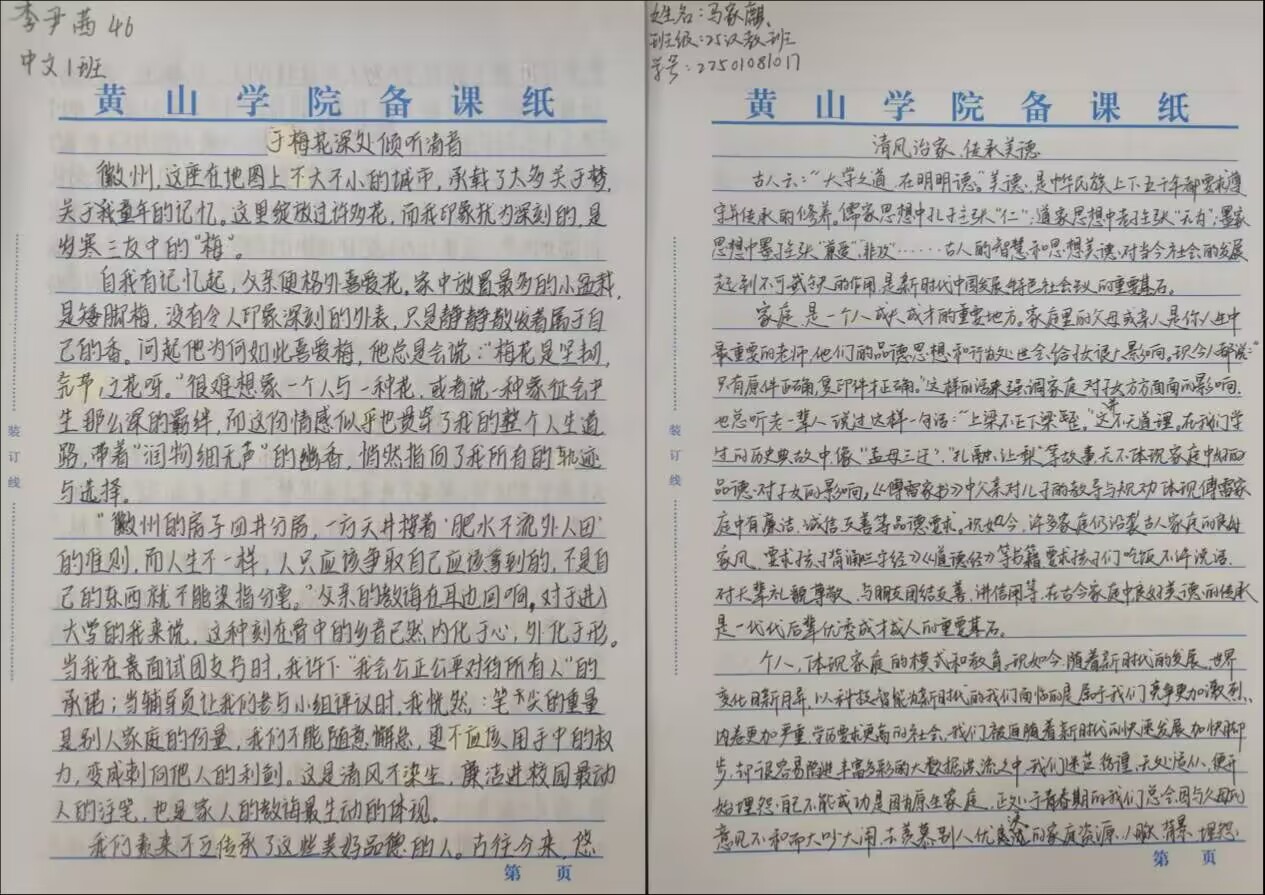 李尹茜 46
中文1班
黄山学院备课纸
于梅花深处倾听清音
徽州，这座在地图上不大不小的城市，承载了太多关于梦，
关于我童年的记忆。这里绽放过许多花，而我印象犹为深刻的，是
岁寒三友中的“梅”。
自我有记忆起，父亲便格外喜爱花。家中放置最多的小盆栽，
是矮脚梅，没有令人印象深刻的外表，只是静静散发着属于自
己的香。问起他为何如此喜爱梅，他总是会说：“梅花是坚韧，
之花呀。”很难想象一个人与一种花，或者说一种象征会产
生那么深的羁绊，而这份情感似乎也贯穿了我的整个人生道
路，带着“润物细无声”的幽香，悄然指向了我所有的轨迹
与选择。
“徽州的房子四井分居，一方天井接着‘肥水不流外人田’
的准则，而人生不一样，人只应该争取自己应该拿到的，不是自
己的东西就不能染指分毫。”父亲的教诲在耳边回响。对于进入
大学的我来说，这种刻在骨中的乡音已然内化于心，外化于形。
当我在竞面试团支书时，我许下“我会公正公平对待所有人”的
承诺；当辅导员让我们参与小组评议时，我恍然：笔尖的重量
是别人家庭的份量，我们不能随意懈怠，更不应该用手中的权
力，变成刺向他人的利剑。这是清风不染尘，廉洁进校园最动
人的注笔，也是家人的教诲最生动的体现。
我们素来不乏传承了这些美好品德的人。古往今来，您
第 页
装订线
姓名：马家麒
班级：25汉教班
学号：22501081017
黄山学院备课纸
清风治家，传承美德
古人云：“大学之道，在明明德。”美德，是中华民族上下五千年都要求遵
守并传承的修养。儒家思想中孔子主张“仁”；道家思想中老子主张“无为”；墨家
思想中墨子主张“兼爱”，“非攻”……古人的智慧和思想美德，对当今社会的发展
起到不可或缺的作用，是新时代中国发展特色社会主义的重要基石。
家庭，是一个人成长成才的重要地方。家庭里的父母或亲人是你人生中
最重要的老师，他们的品德思想和行为处世会给你很大影响。现今人都说：
“只有原件正确，复印件才正确。”这样的话来强调家庭对子女方方面面的影响，
也总听老一辈人说过这样一句话：“上梁不正下梁歪。”这并不无道理。在我们学
过的历史典故中，像“孟母三迁”、“孔融让梨”等故事，无不体现家庭中的
品德对子女的影响。《傅雷家书》中父亲对儿子的教导与规劝体现傅雷家
庭中有廉洁、诚信、友善等品德要求。现如今，许多家庭仍沿袭古人家庭的良好
家风，要求孩子背诵《三字经》《道德经》等书籍，要求孩子们吃饭不许说话，
对长辈礼貌尊敬，与朋友团结友善，讲信用等，在古今家庭中良好美德的传承
是一代代后辈优秀成才成人的重要基石。
个人，体现家庭的模式和教育。现如今，随着新时代的发展，世界
变化日新月异，以科技智能为新时代的我们面临的是属于我们竞争更加激烈、
内卷更加严重、学历要求更高的社会，我们被迫随着新时代的快速发展加快脚
步，却很容易陷进丰富多彩的大数据洪流之中，我们迷茫彷徨，无处适从，便开
始埋怨自己不能成功是因原生家庭。正处于青春期的我们总会因与父母的
意见不和而大吵大闹，去羡慕别人优渥的家庭资源、人脉、背景，埋怨
第 页
装订线